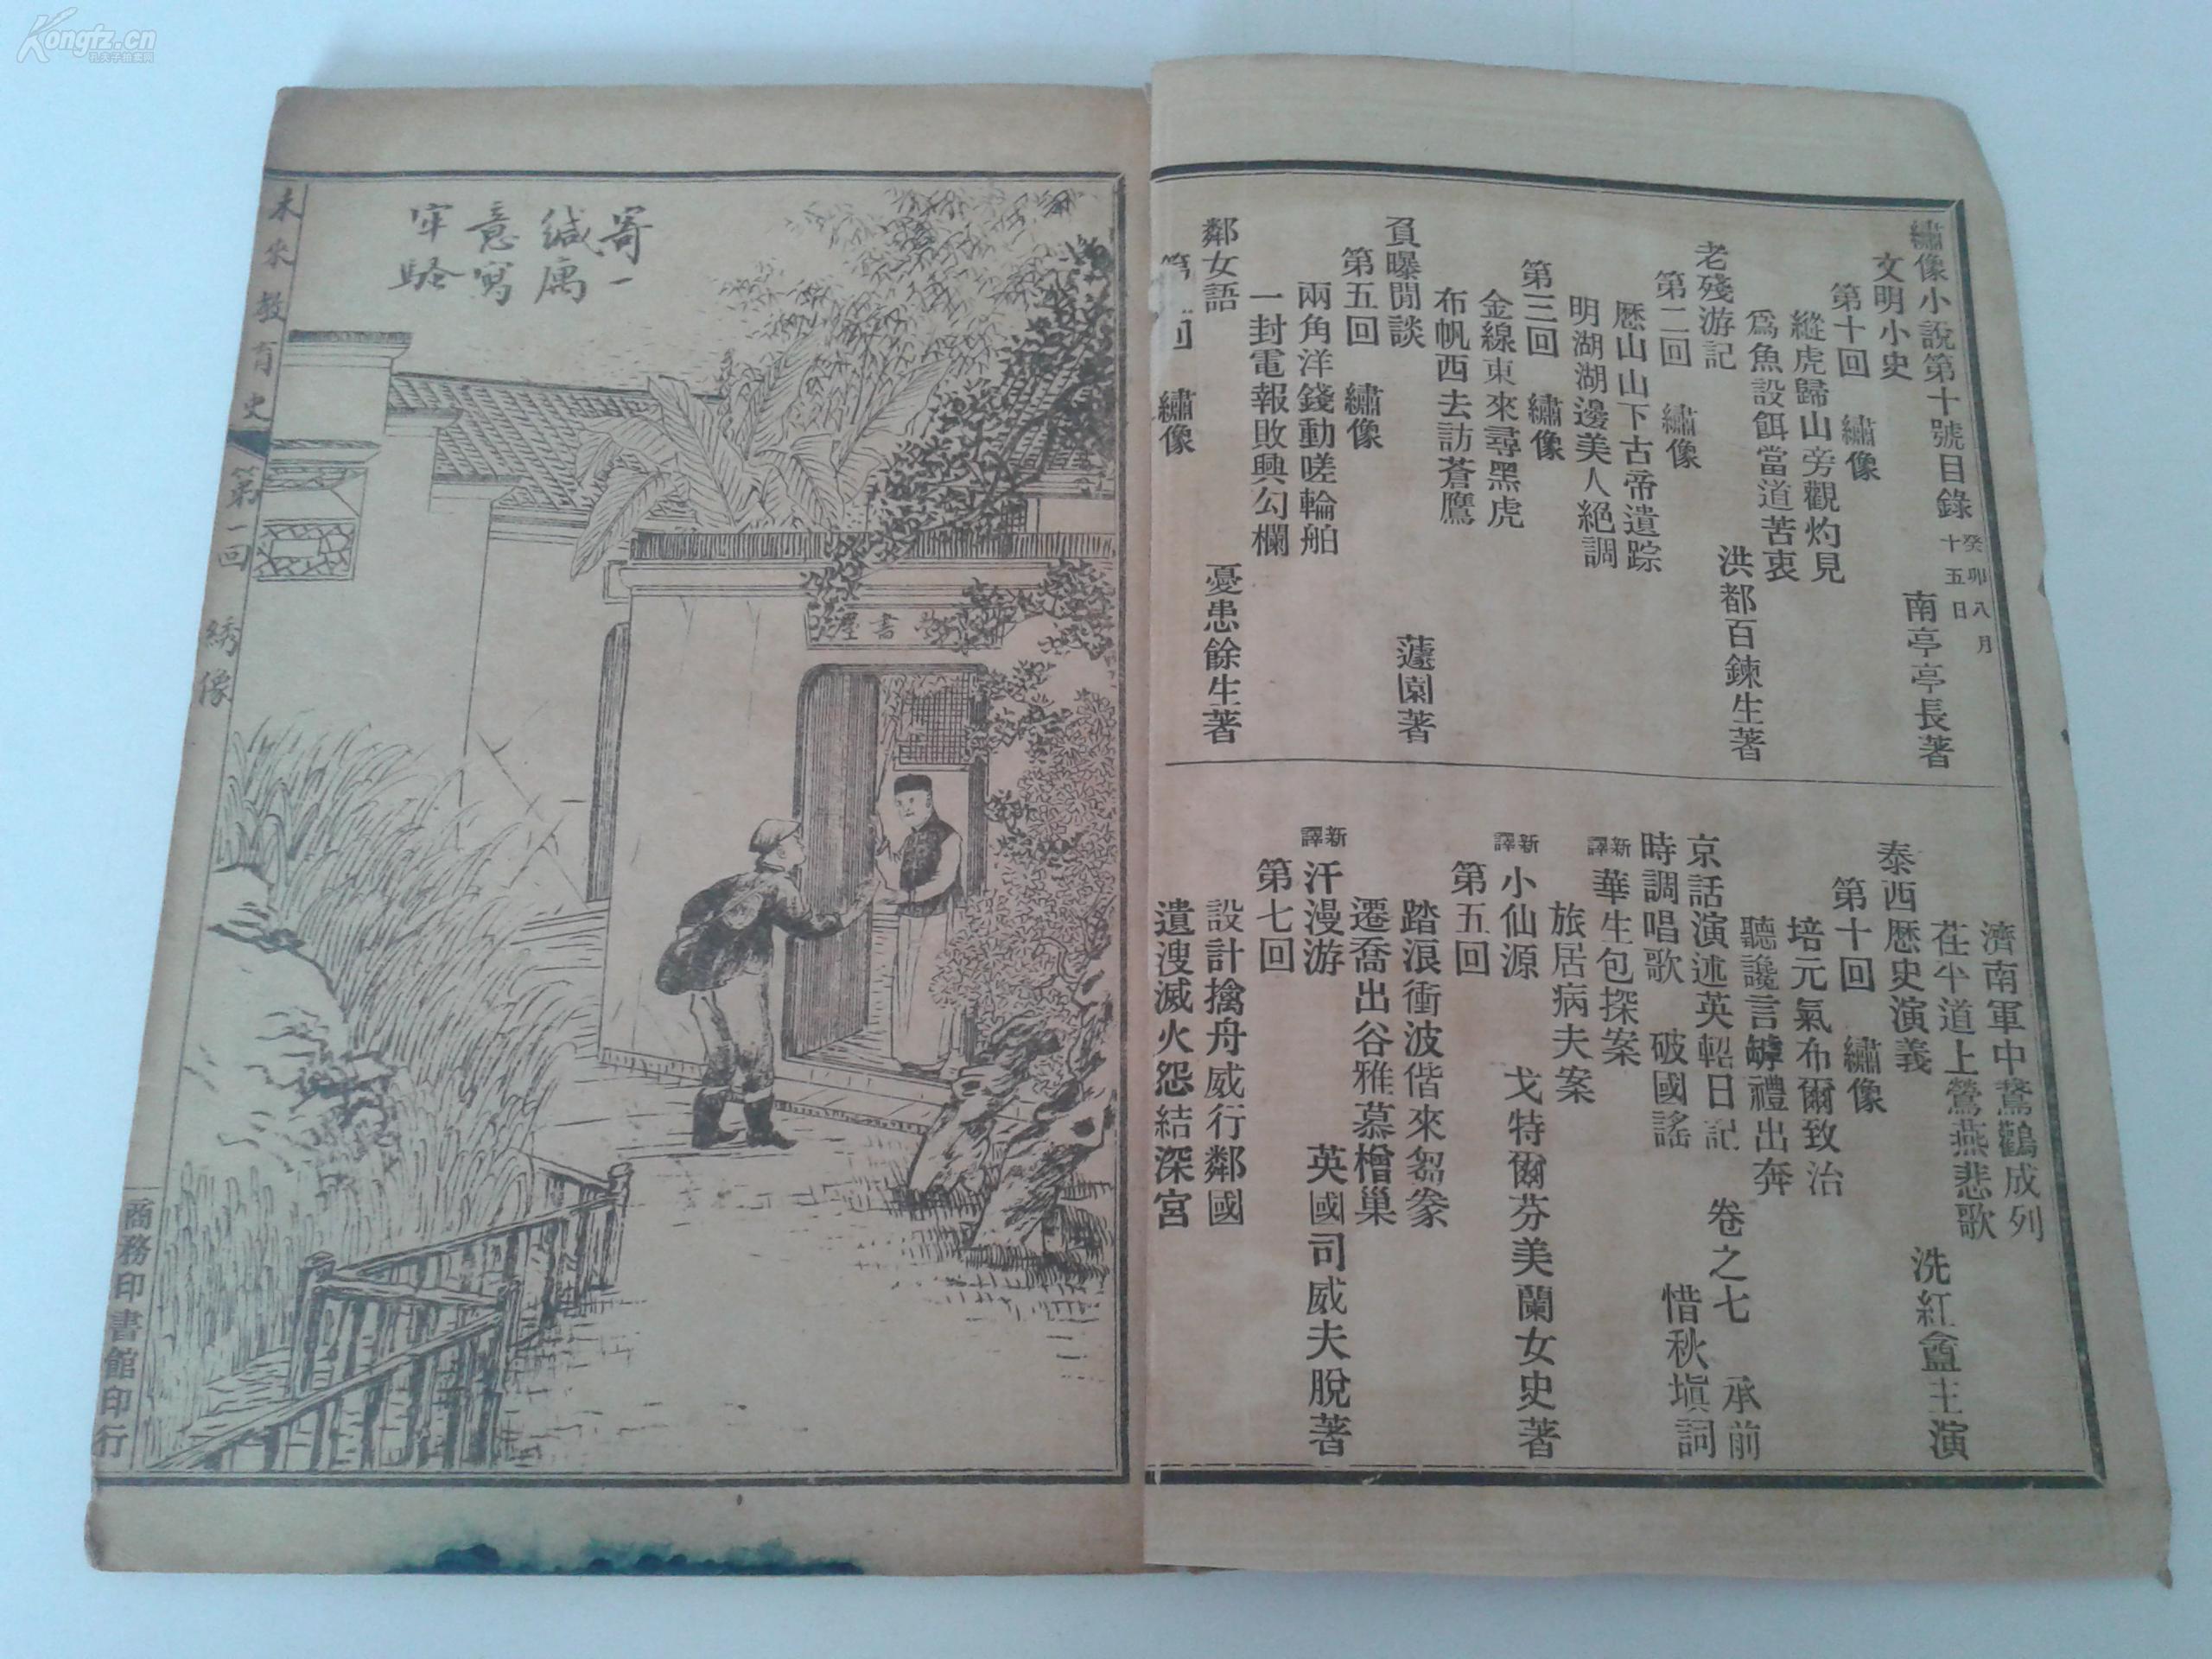 繡像小說第十號目錄 癸卯八月十五日
文明小史 南亭亭長著
第十回 繡像
縱虎歸山旁觀灼見
爲魚設餌當道苦衷
老殘游記 洪都百鍊生著
第二回 繡像
歷山山下古帝遺踪
明湖湖邊美人絕調
第三回 繡像
金線東來尋黑虎
布帆西去訪蒼鷹
負曝閒談 蘧園著
第五回 繡像
兩角洋錢動嗟輪舶
一封電報敗興勾欄
鄰女語 憂患餘生著
第 回 繡像
濟南軍中鵞鸛成列
茌平道上鶯燕悲歌
泰西歷史演義 洗紅盦主演
第十回 繡像
培元氣布爾致治
聽讒言罅禮出奔
京話演述英軺日記 卷之七 承前
時調唱歌 破國謠 惜秋塡詞
新譯華生包探案
旅居病夫案
新譯小仙源 戈特爾芬美蘭女史著
第五回
踏浪衝波偕來芻豢
遷喬出谷雅慕檜巢
新譯汗漫游 英國司威夫脫著
第七回
設計擒舟威行鄰國
遺溲滅火怨結深宮
寄一
緘屬
意寫
牢騷
書塾
未來教育史 第一回 綉像
商務印書館印行
Kongfz.cn
孔夫子拍卖网